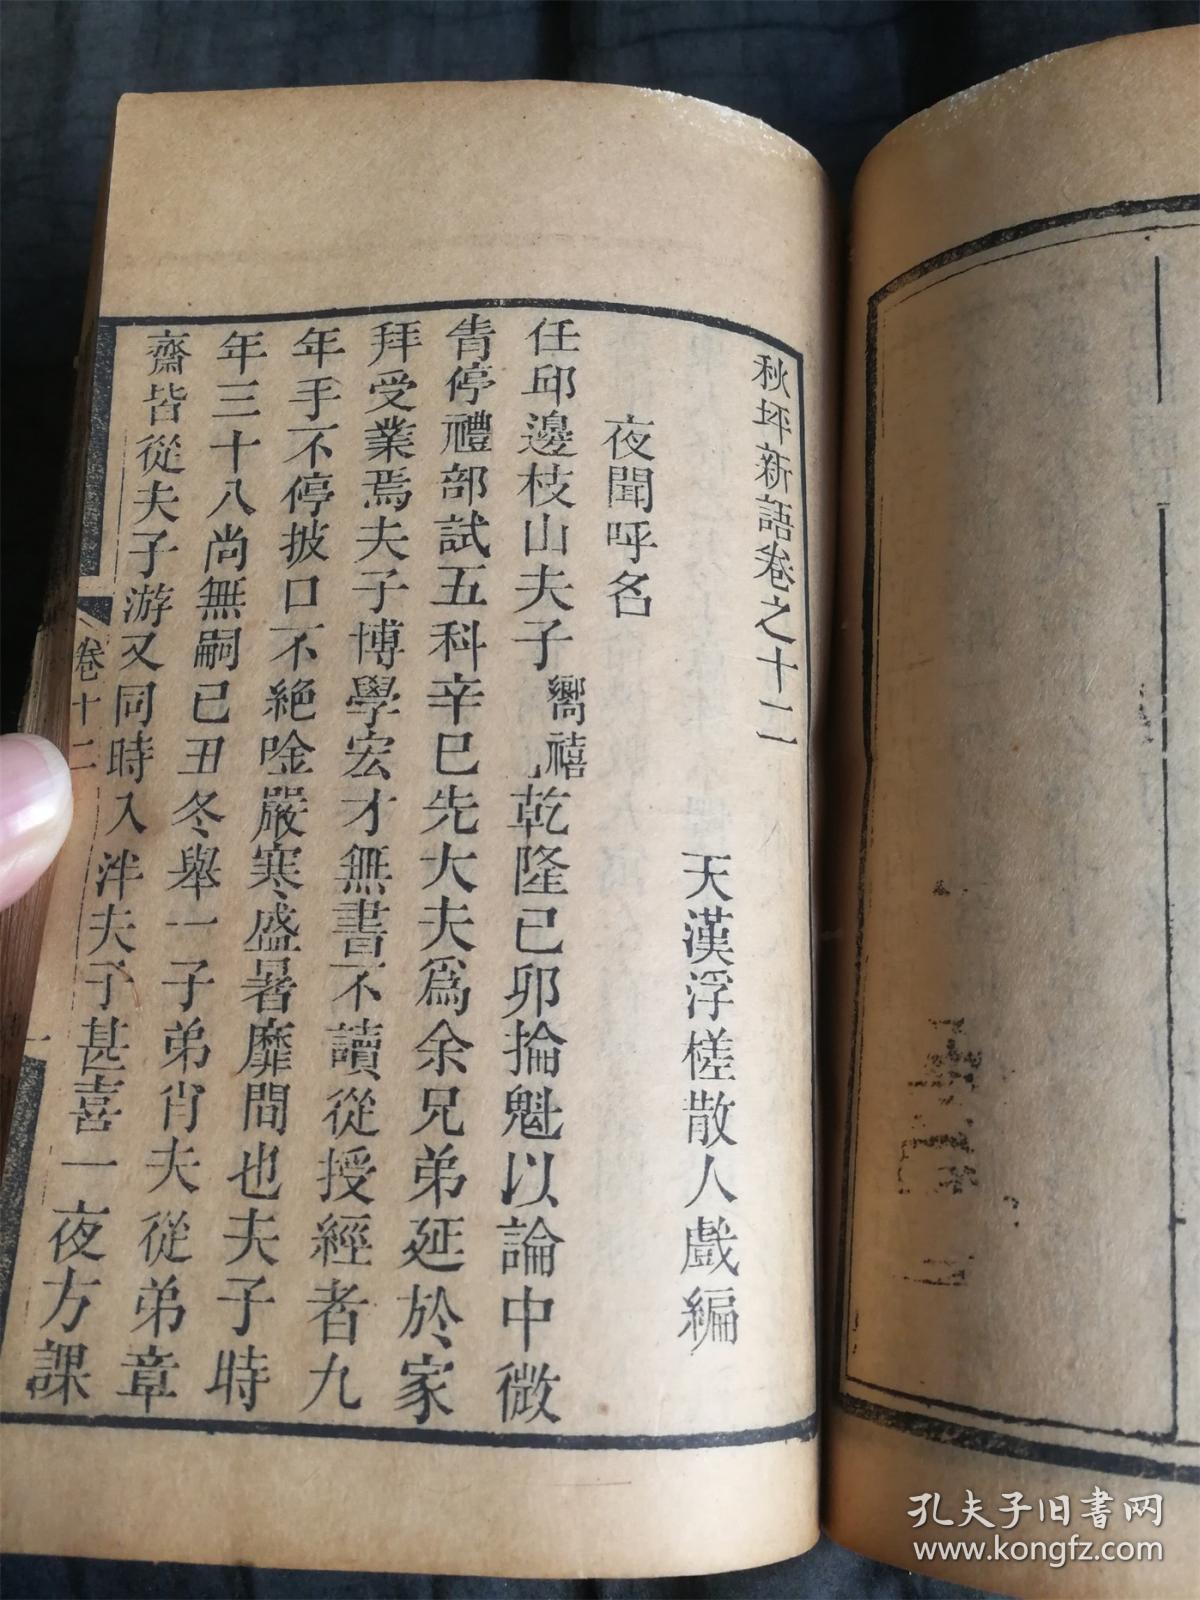 秋坪新語卷之十二
天漢浮槎散人戲編
夜聞呼名
任邱邊枝山夫子嚮禧乾隆己卯掄魁以論中微
眚停禮部試五科辛巳先大夫爲余兄弟延於家
拜受業焉夫子博學宏才無書不讀從授經者九
年手不停披口不絶唫嚴寒盛暑靡間也夫子時
年三十八尚無嗣己丑冬舉一子弟肖夫從弟章
齋皆從夫子游又同時入泮夫子甚喜一夜方課
卷十二
一
孔夫子旧书网
www.kongfz.com